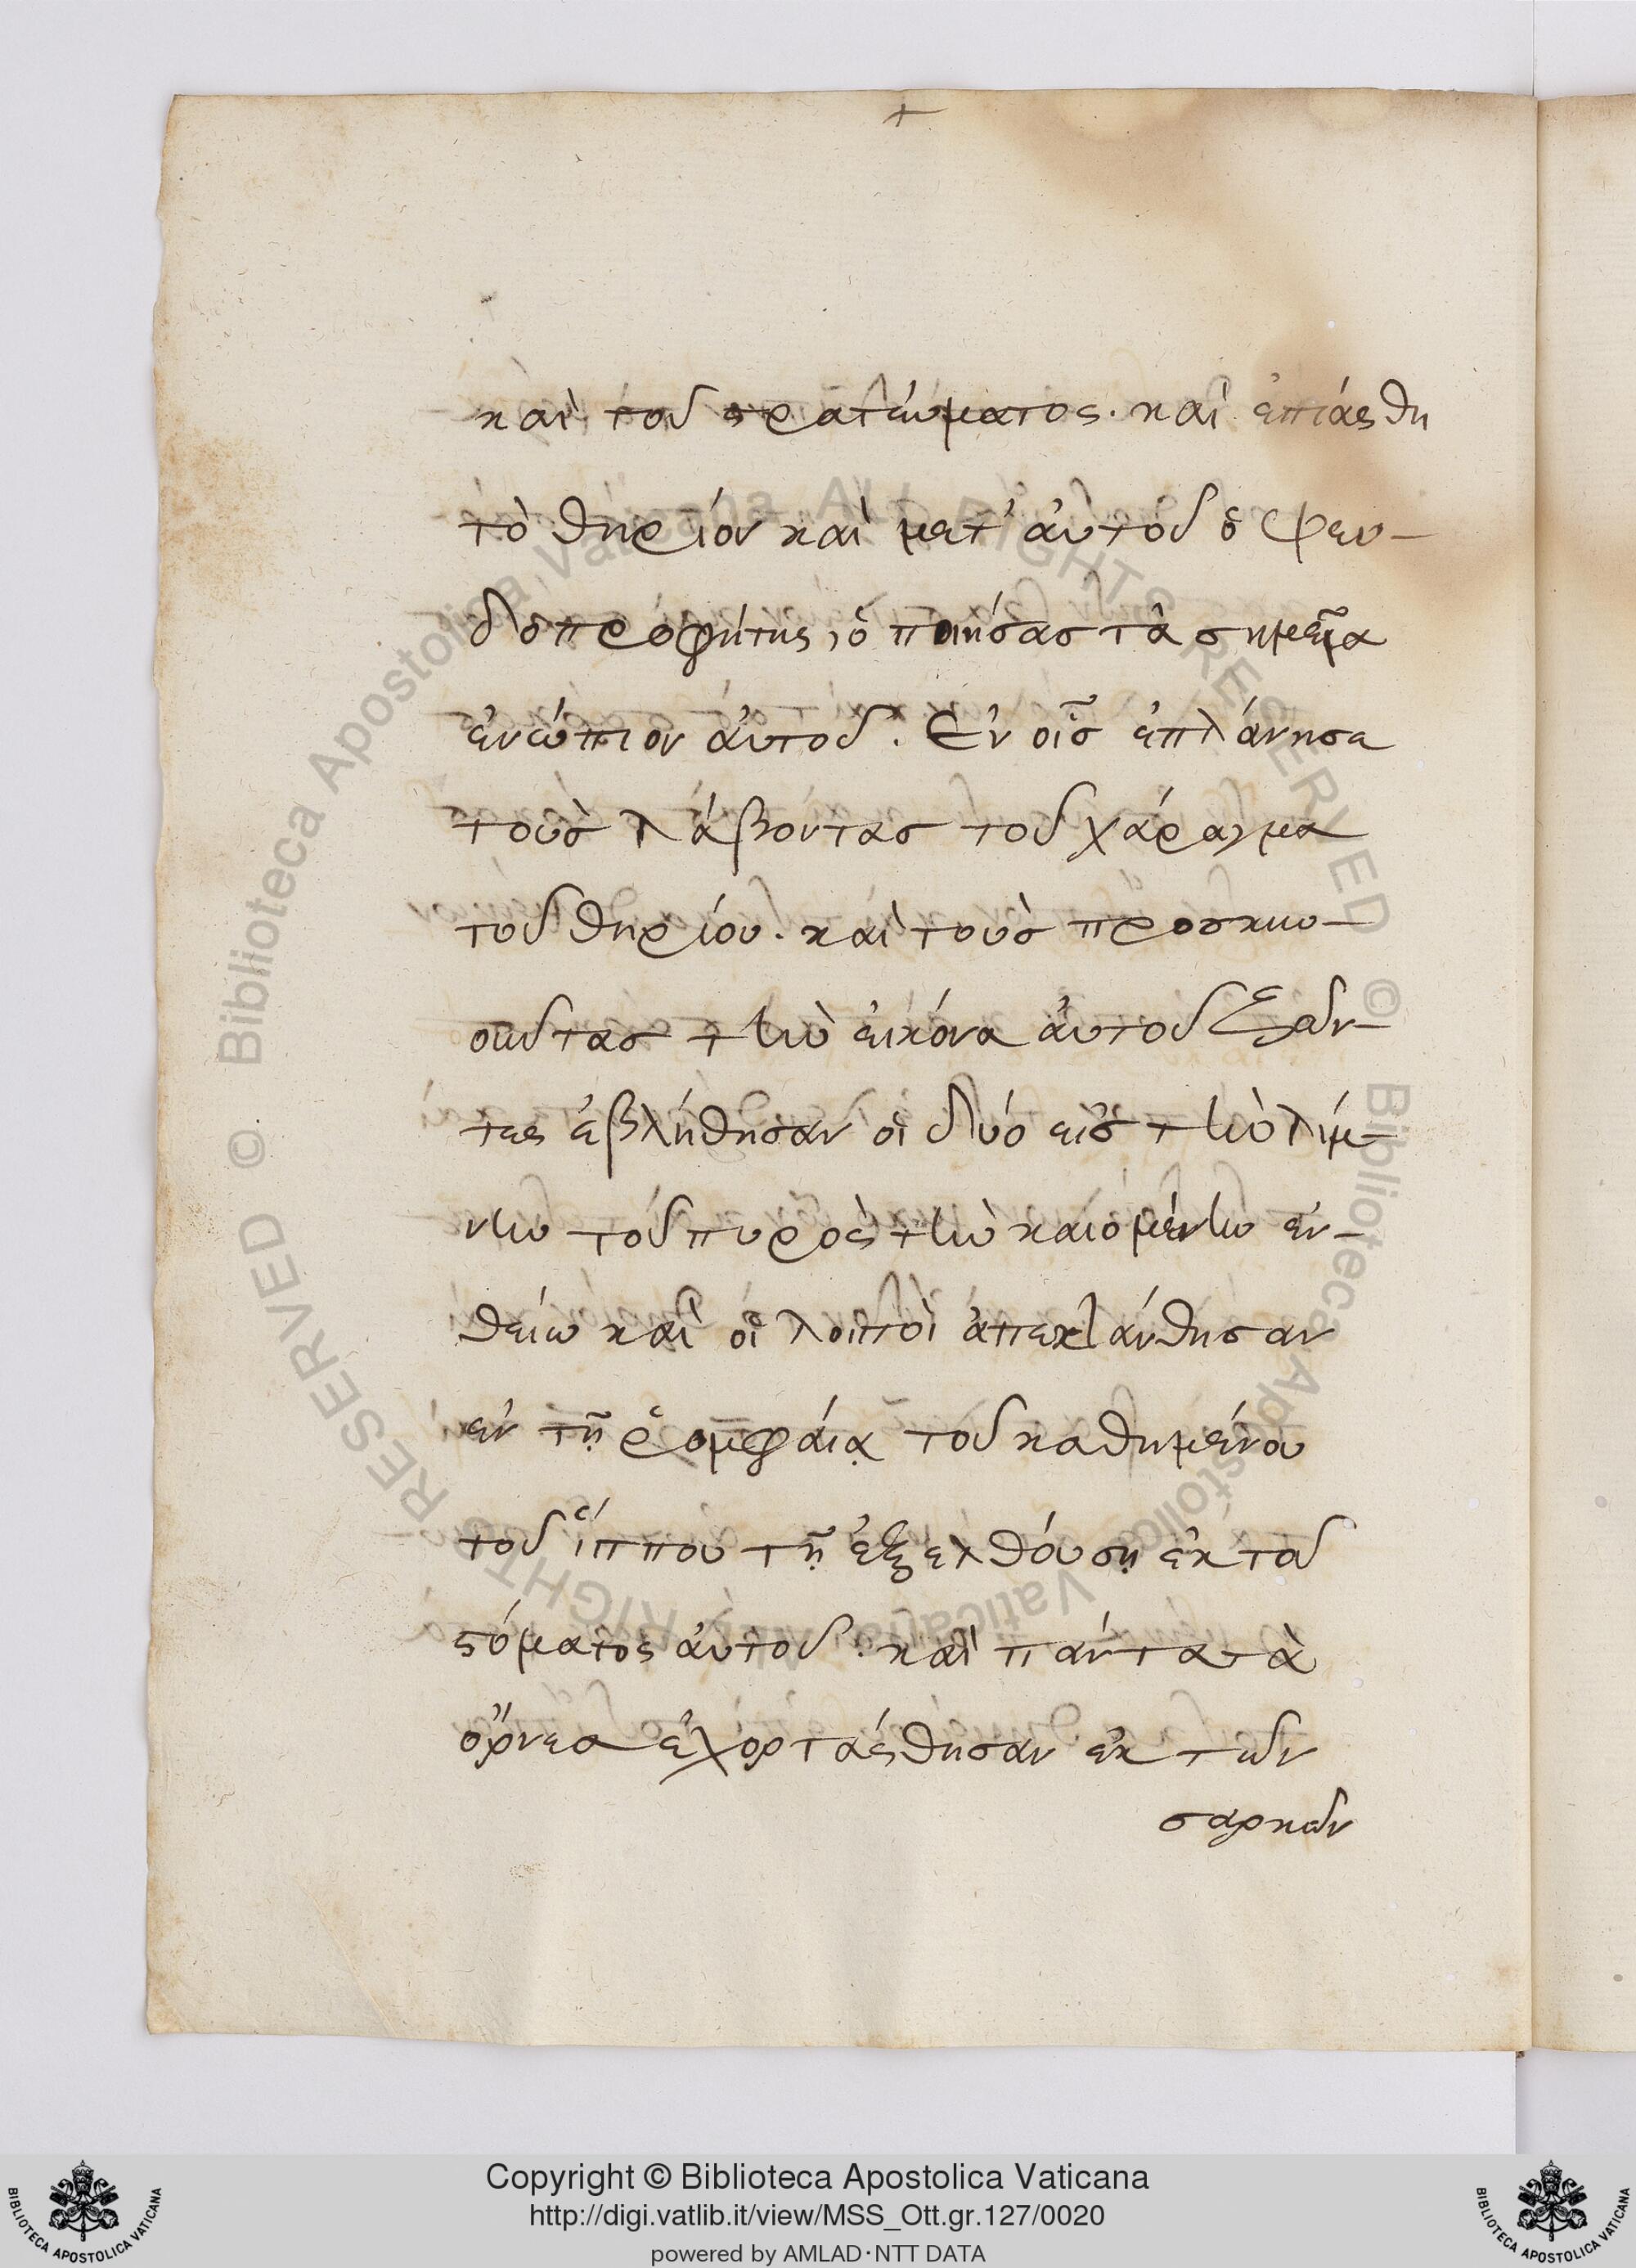 καὶ τοῦ στρατεύματος. καὶ ἐπιάσθη
τὸ θηρίον καὶ μετ' ἀυτοῦ ὁ ψευ-
δοπροφήτης, ὁ ποιήσας τὰ σημεῖα
ἐνώπιον ἀυτοῦ. Ἐν οἷς ἐπλάνησε
τοὺς λάβοντας τοῦ χάραγμα
τοῦ θηρίου. καὶ τοὺς προσκυ-
οῦντας τὴν εἰκόνα ἀυτοῦ ζῶν-
τες ἐβλήθησαν οἱ δύο εἰς τὴν λίμ-
νην τοῦ πυρὸς τὴν καιομένην ἐν
θείω καὶ οἱ λοιποὶ ἀπεκτάνθησαν
ἐν τῇ ῥομφάιᾳ τοῦ καθημένου
τοῦ ἵππου τῇ ἐξελθόυσῃ ἐκ τοῦ
στόματος ἀυτοῦ. καὶ πάντα τὰ
ὄρνεα ἐχορτάσθησαν ἐκ τῶν
σαρκῶν
Copyright © Biblioteca Apostolica Vaticana
http://digi.vatlib.it/view/MSS_Ott.gr.127/0020
powered by AMLAD·NTT DATA
BIBLIOTECA APOSTOLICA VATICANA
BIBLIOTECA APOSTOLICA VATICANA